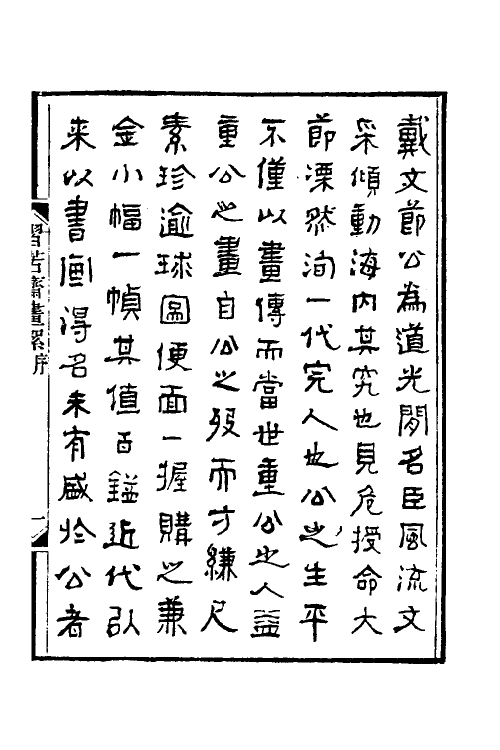 戴文節公為道光間名臣風流文
采傾動海内其究也見危授命大
節溧然洵一代完人也公之生平
不僅以畫傳而當世重公之人益
重公之畫自公之殁而寸縑尺
素珍逾球圖便面一握購之兼
金小幅一幀其值百鎰近代以
来以書画得名未有盛於公者
習苦齋畫絮序
一